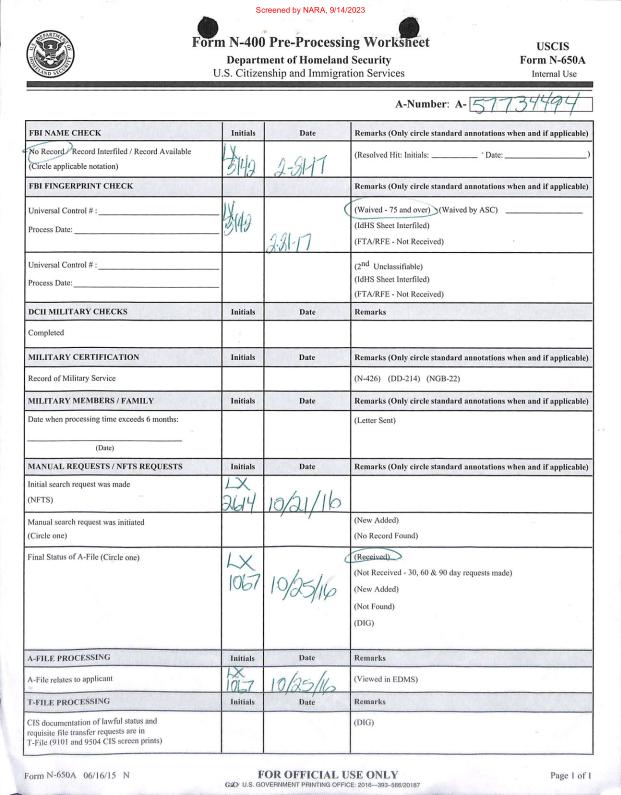 Screened by NARA, 9/14/2023
Form N-400 Pre-Processing Worksheet
Department of Homeland Security
U.S. Citizenship and Immigration Services
USCIS
Form N-650A
Internal Use
A-Number: A- 57734494
FBI NAME CHECK Initials Date Remarks (Only circle standard annotations when and if applicable)
No Record / Record Interfiled / Record Available
(Circle applicable notation)
LX
3142
(Resolved Hit: Initials: Date: )
FBI FINGERPRINT CHECK Remarks (Only circle standard annotations when and if applicable)
Universal Control # :
Process Date:
LX
3142
(Waived - 75 and over) (Waived by ASC)
(IdHS Sheet Interfiled)
(FTA/RFE - Not Received)
Universal Control # :
Process Date:
(2nd Unclassifiable)
(IdHS Sheet Interfiled)
(FTA/RFE - Not Received)
DCII MILITARY CHECKS Initials Date Remarks
Completed
MILITARY CERTIFICATION Initials Date Remarks (Only circle standard annotations when and if applicable)
Record of Military Service (N-426) (DD-214) (NGB-22)
MILITARY MEMBERS / FAMILY Initials Date Remarks (Only circle standard annotations when and if applicable)
Date when processing time exceeds 6 months: (Letter Sent)
(Date)
MANUAL REQUESTS / NFTS REQUESTS Initials Date Remarks (Only circle standard annotations when and if applicable)
Initial search request was made
(NFTS)
LX
2614 10/21/16
Manual search request was initiated
(Circle one)
(New Added)
(No Record Found)
Final Status of A-File (Circle one)
LX
1067 10/25/16
(Received)
(Not Received - 30, 60 & 90 day requests made)
(New Added)
(Not Found)
(DIG)
A-FILE PROCESSING Initials Date Remarks
A-File relates to applicant
LX
1067 10/25/16
(Viewed in EDMS)
T-FILE PROCESSING Initials Date Remarks
CIS documentation of lawful status and
requisite file transfer requests are in
T-File (9101 and 9504 CIS screen prints)
(DIG)
Form N-650A 06/16/15 N
FOR OFFICIAL USE ONLY
Page 1 of 1
GPO: U.S. GOVERNMENT PRINTING OFFICE: 2016—393-586/20187